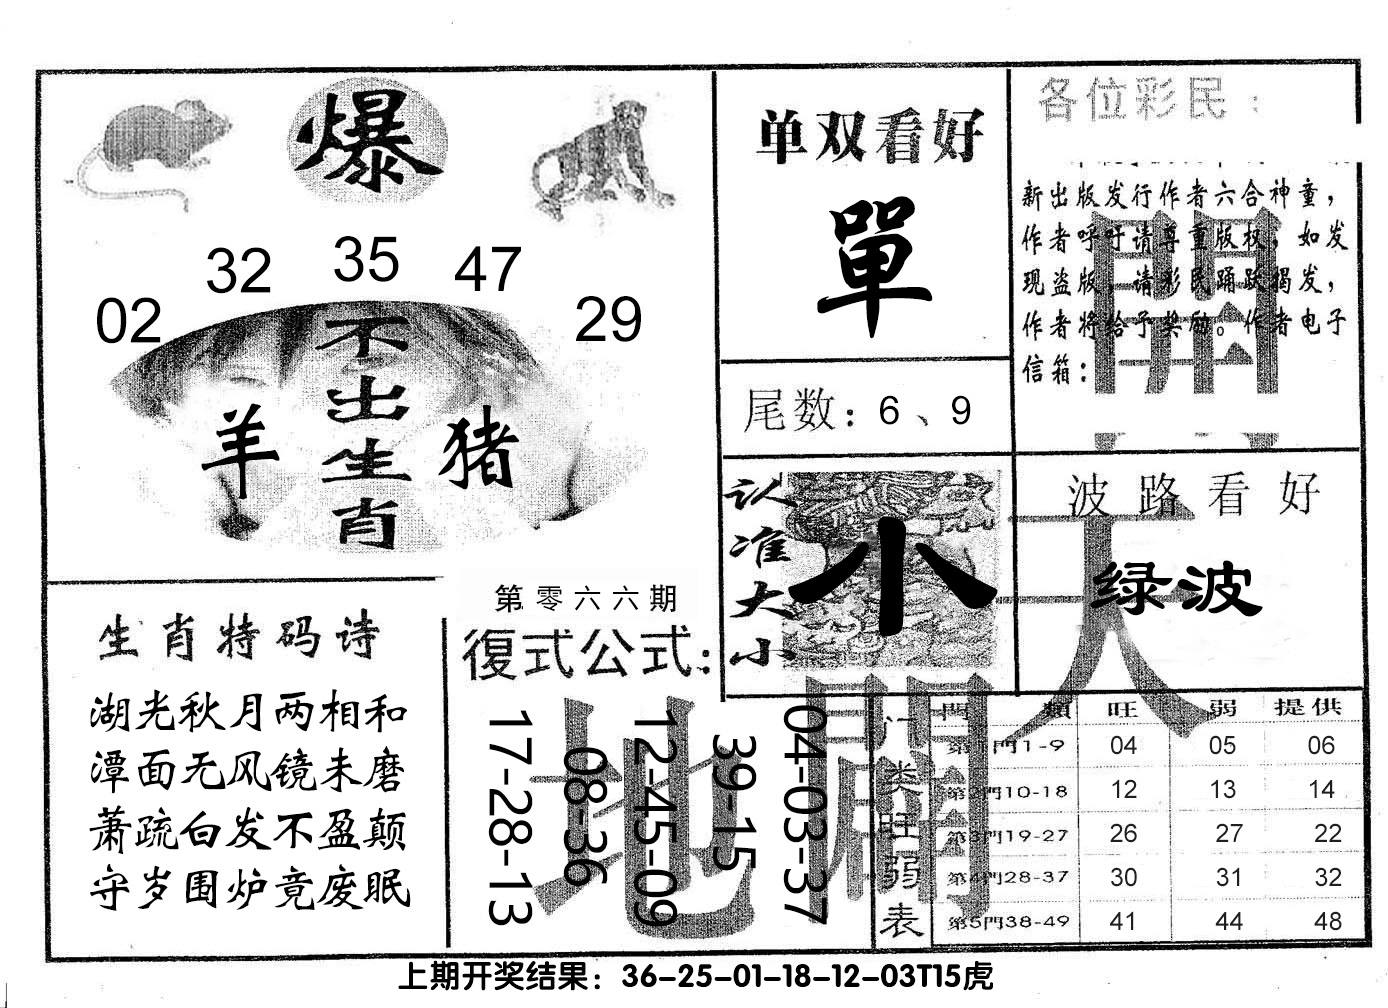 爆
02 32 35 47 29
不出生肖
羊 猪
生肖特码诗
湖光秋月两相和
潭面无风镜未磨
萧疏白发不盈颠
守岁围炉竟废眠
第零六六期
復式公式:
17-28-13
08-36
12-45-09
39-15
04-03-37
单双看好
單
尾数: 6、9
认准大小
小
各位彩民:
新出版发行作者六合神童,
作者呼吁请尊重版权,如发
现盗版,请彩民踊跃揭发,
作者将给予奖励。作者电子
信箱:
波路看好
绿波
天
地
開
門类旺弱表
門類 旺 弱 提供
第1門1-9 04 05 06
第2門10-18 12 13 14
第3門19-27 26 27 22
第4門28-37 30 31 32
第5門38-49 41 44 48
上期开奖结果: 36-25-01-18-12-03T15虎